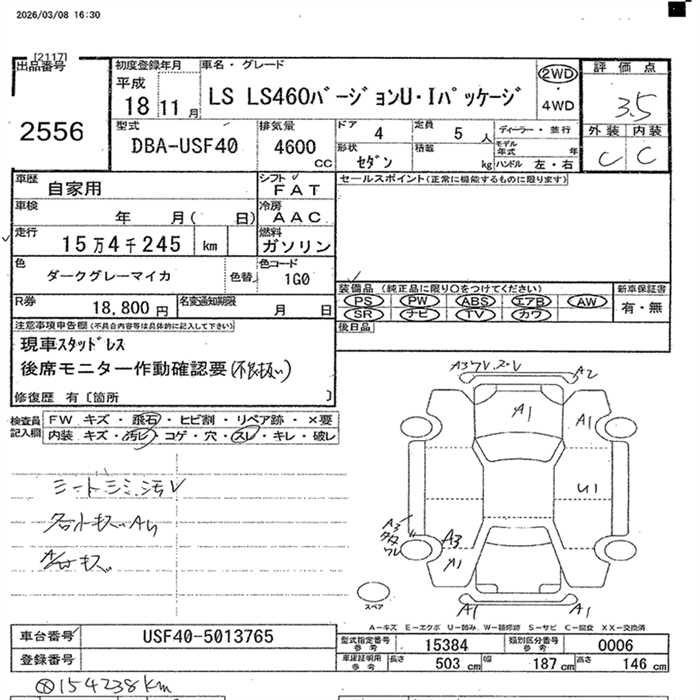 2026/03/08 16:30
[2117]
出品番号
2556
初度登録年月
平成
18 11月
車名・グレード
LS LS460バージョンU・Iパッケージ
2WD
・
4WD
評価点
3.5
外装 内装
C C
型式
DBA-USF40
排気量
4600
CC
ドア
4
定員
5
人
形状
セダン
積載
kg
ディーラー・並行
モデル年式
年
ハンドル 左・右
車歴
自家用
シフト
FAT
車検
年 月( 日)
冷房
AAC
走行
15万4千245 km
燃料
ガソリン
色
ダークグレーマイカ
色替
色コード
1G0
R券
18,800円
名変通知期限
月 日
セールスポイント(正常に機能するものに限ります)
装備品 (純正品に限り○をつけてください)
PS PW ABS エアB AW
SR ナビ TV カワ
新車保証書
有・無
後日品
注意事項申告欄(不具合内容等は具体的に記入して下さい)
現車スタッドレス
後席モニター作動確認要(不良扱い)
修復歴 有〔箇所 〕
検査員
記入欄
FW キズ・飛石・ヒビ割・リペア跡・×要
内装 キズ・汚レ・コゲ・穴・スレ・キレ・破レ
A2
A1
A1
U1
A3
A3
A1
A1
A1
スペア
A−キズ E−エクボ U−凹み W−補修跡 S−サビ C−腐食 XX−交換済
車台番号
USF40-5013765
登録番号
型式指定番号
参考
15384
類別区分番号
参考
0006
車庫証明用
参考
長さ
503 cm
幅
187 cm
高さ
146 cm
154238km